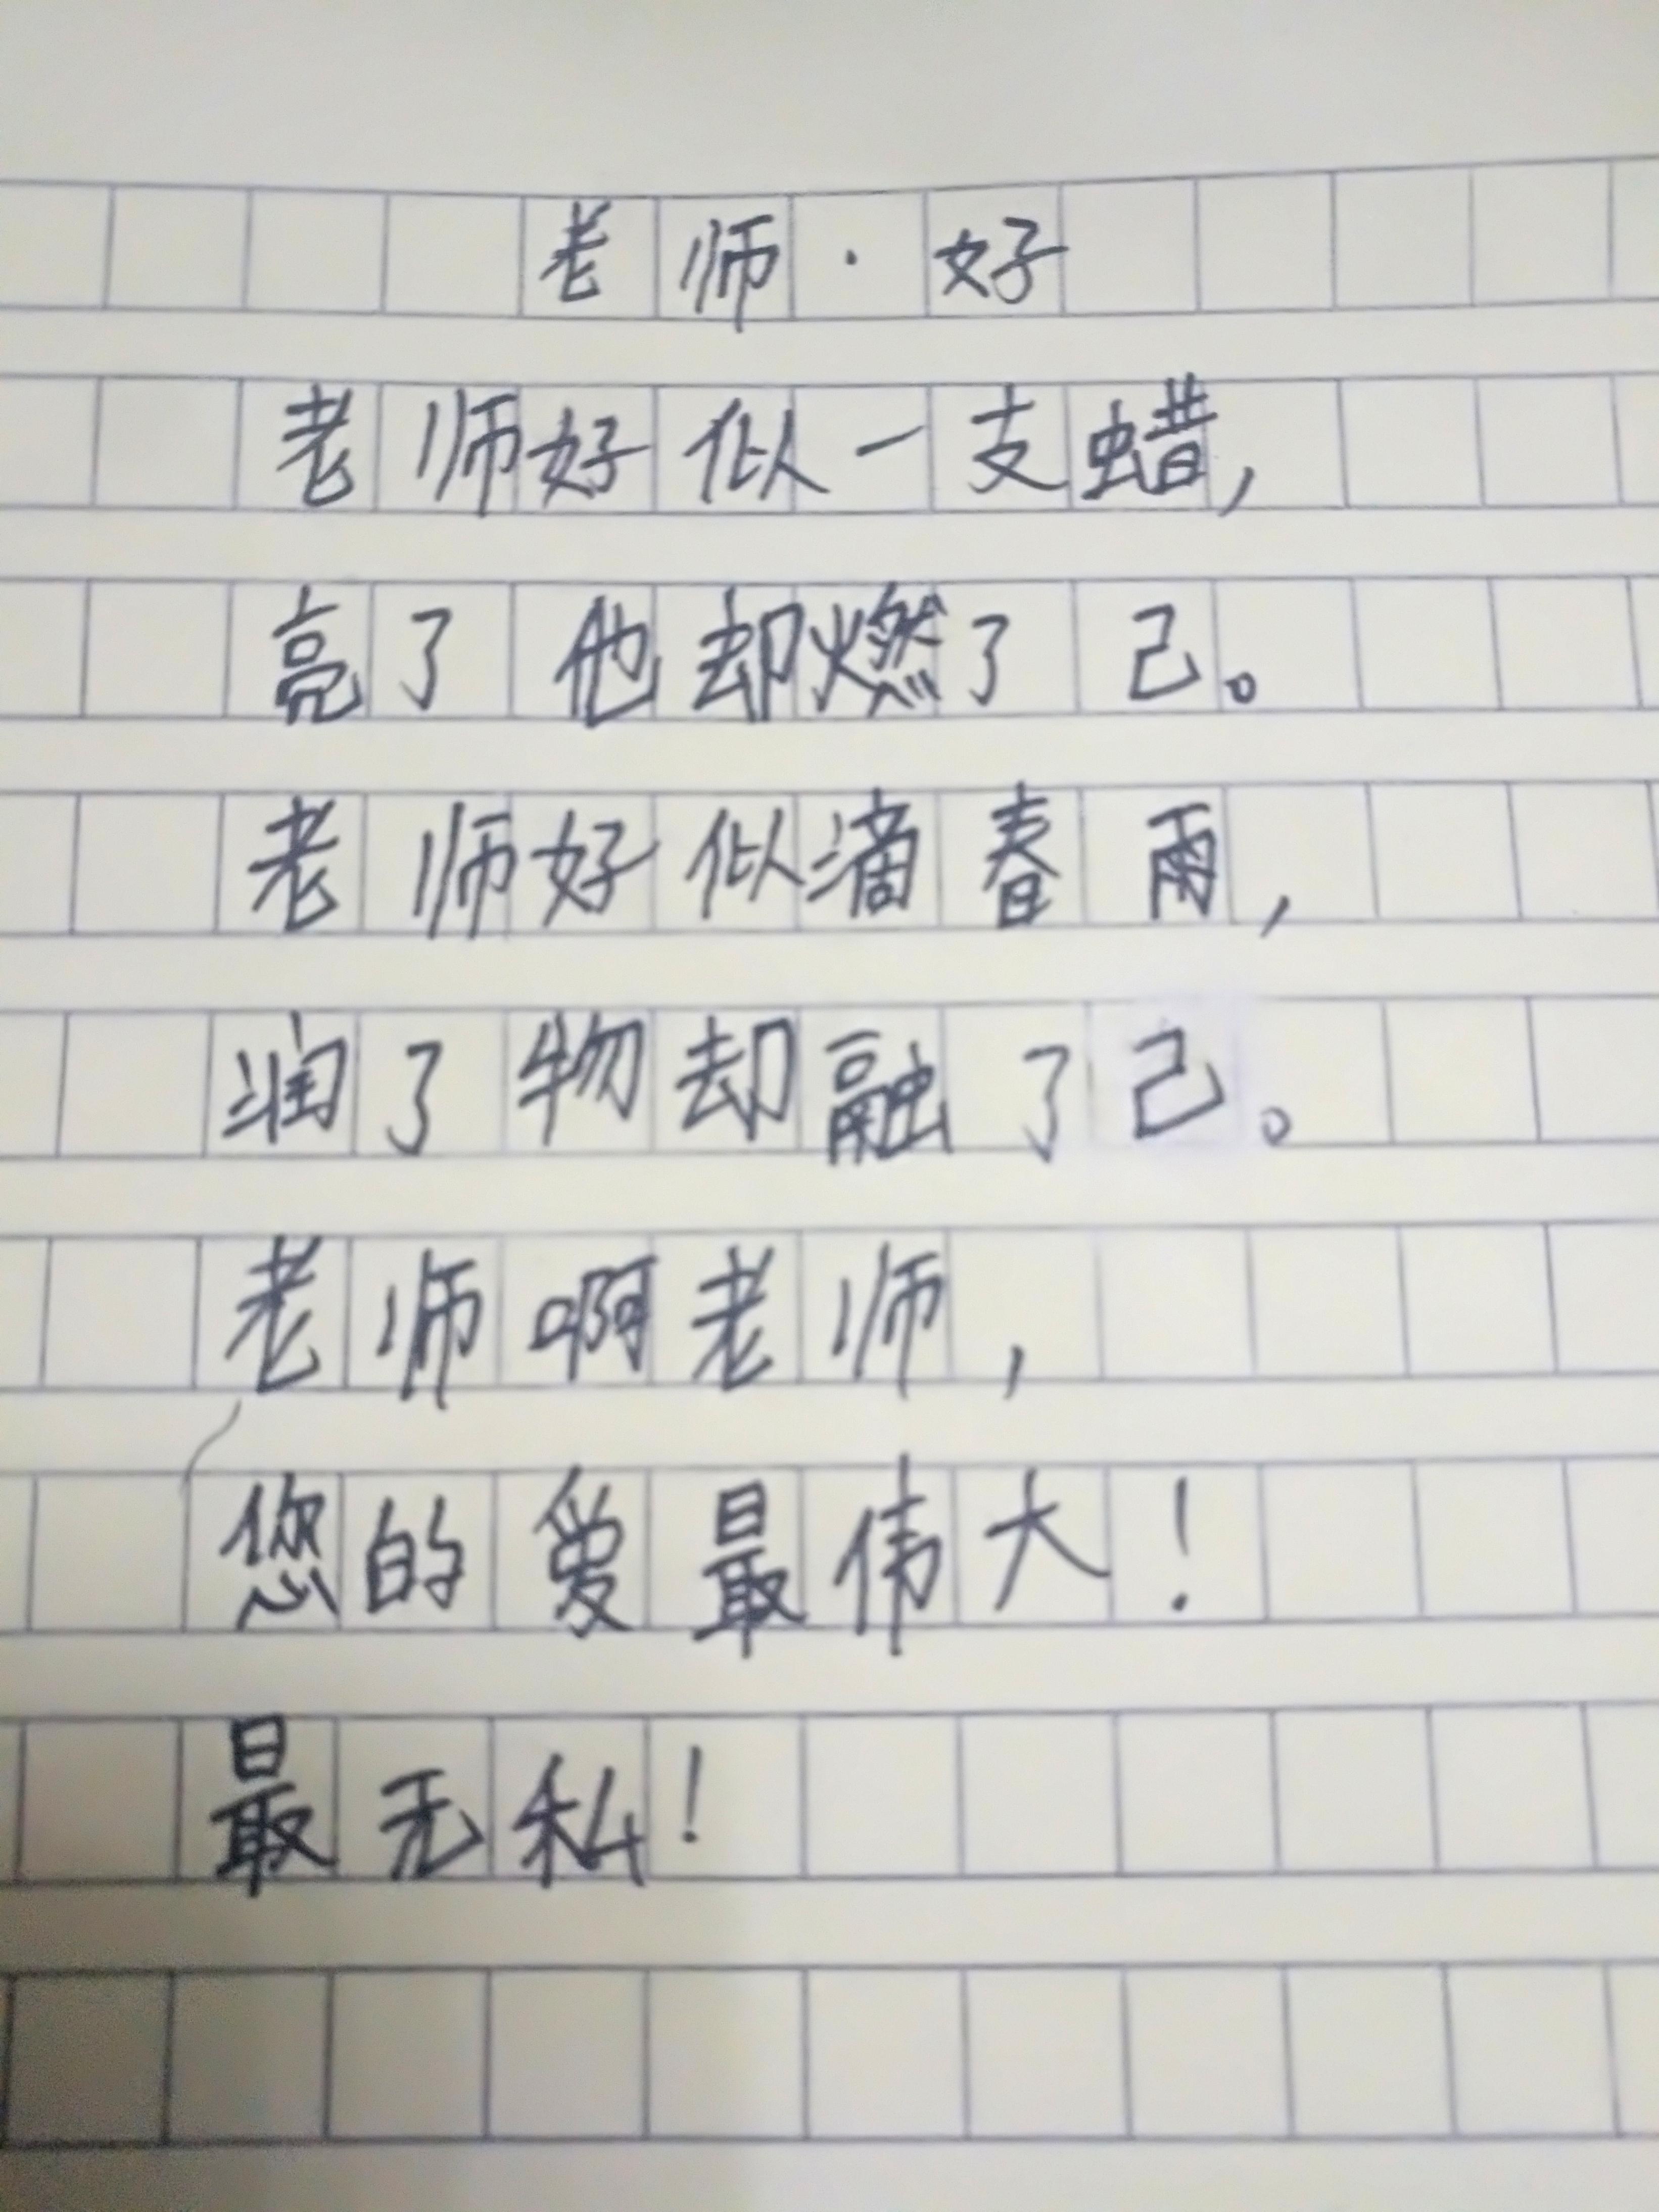 老师·好
老师好似一支蜡,
亮了他却燃了己。
老师好似滴春雨,
润了物却融了己。
老师啊老师,
您的爱最伟大!
最无私!